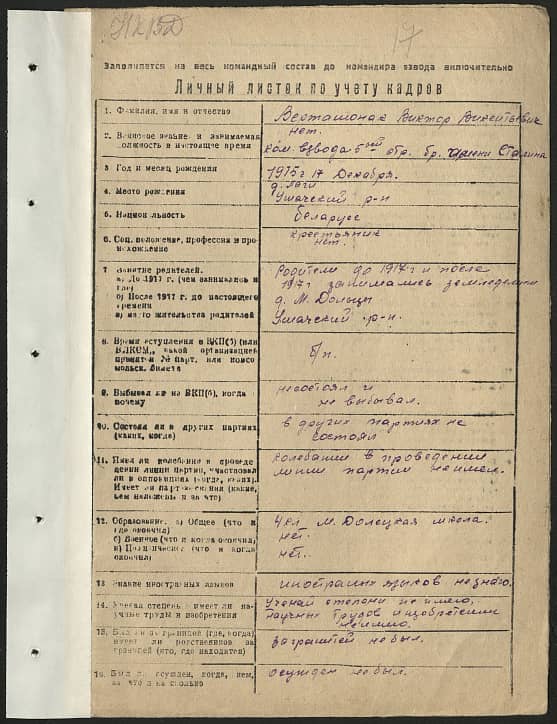 17
Заполняется на весь командный состав до командира взвода включительно
Личный листок по учету кадров
1. Фамилия, имя и отчество
Виктор Викентьевич
2. Воинское звание и занимаемая должность в настоящее время
нет.
ком. взвода 5ой отр. бр. имени Сталина
3. Год и месяц рождения
1915 г 17 Декабря.
4. Место рождения
д. Лаги
Ушачский р-н
5. Национальность
Беларусс
6. Соц. положение, профессия и происхождение
крестьяник
нет.
7. Занятие родителей.
а) До 1917 г. (чем занимались и где)
б) После 1917 г. до настоящего времени
в) место жительства родителей
Родители до 1917 г и после
1917 занимались земледелием
д. М. Дольцы
Ушачский р-н.
8. Время вступления в ВКП(б) или ВЛКСМ, какой организацией принят и № парт. или комсомольск. билета
б/п.
9. Выбывал ли из ВКП(б), когда почему
несостоял и
не выбывал.
10. Состоял ли в других партиях (каких, когда)
в других партиях не
состоял
11. Имел ли колебания в проведении линии партии, участвовал ли в оппозициях (когда, каких). Имеет ли партвзыскания (какие, кем наложены и за что)
Колебании в проведении
линии партии неимел.
12. Образование. а) Общее (что и где окончил)
б) Военное (что и когда окончил)
в) Политическое (что и когда окончил)
4 кл М. Долецкая школа.
нет.
нет.
13. Знание иностранных языков
иностраных языков незнаю.
14. Ученая степень, имеет ли научные труды и изобретения
Ученой степени не имею,
научных трудов и изобретении
неимею.
15. Был ли за границей (где, когда) имеет ли родственников за границей (кто, где находится)
заграницей небыл.
16. Был ли осужден, когда, кем, за что и на сколько
осужден небыл.